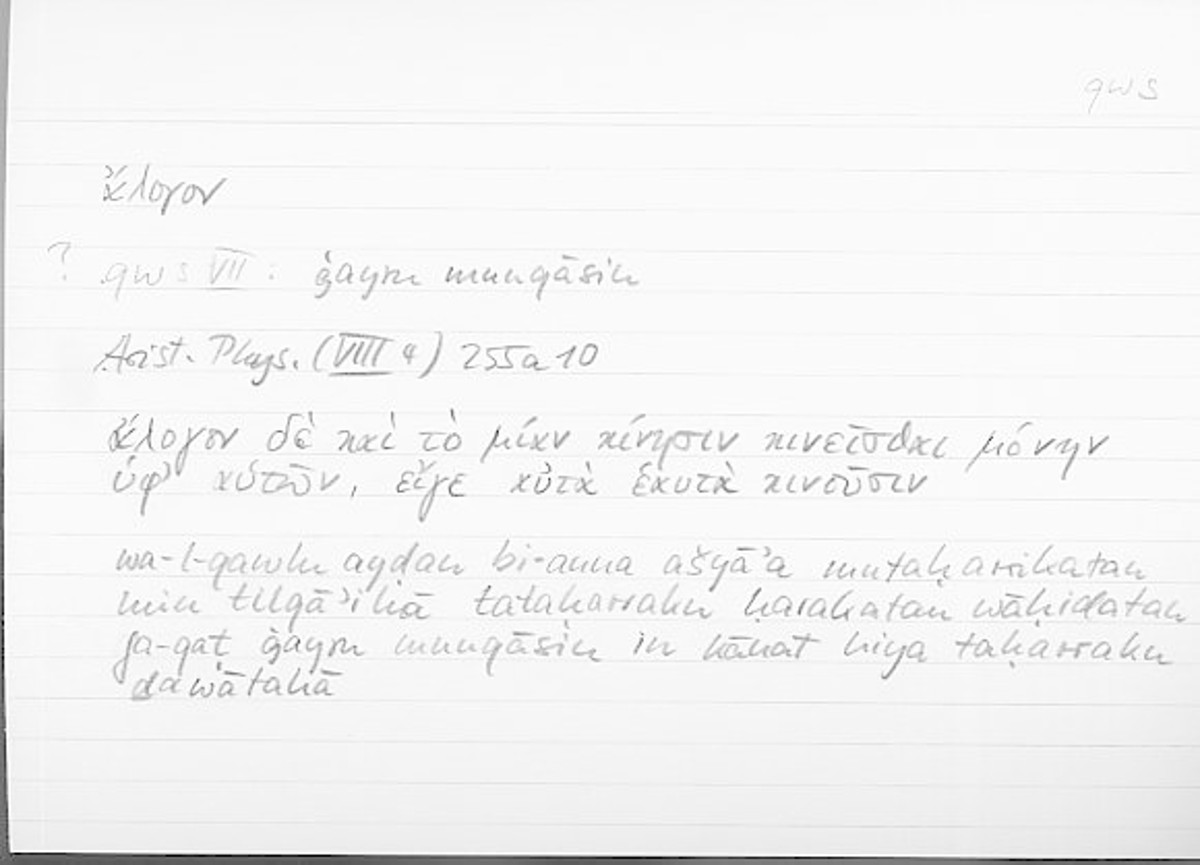 qws
ἄλογον
? qws VII : ġayru munqāsin
Arist. Phys. (VIII 4) 255a10
ἄλογον δὲ καὶ τὸ μίαν κίνησιν κινεῖσθαι μόνην
ὑφ' αὑτῶν, εἴγε αὐτὰ ἑαυτὰ κινοῦσιν
wa-l-qawlu ayḍan bi-anna ašyāʾa mutaḥarrikatan
min tilqāʾihā tataḥarraku ḥarakatan wāḥidatan
fa-qaṭ ġayru munqāsin in kānat hiya taḥarraku
ḏawātahā